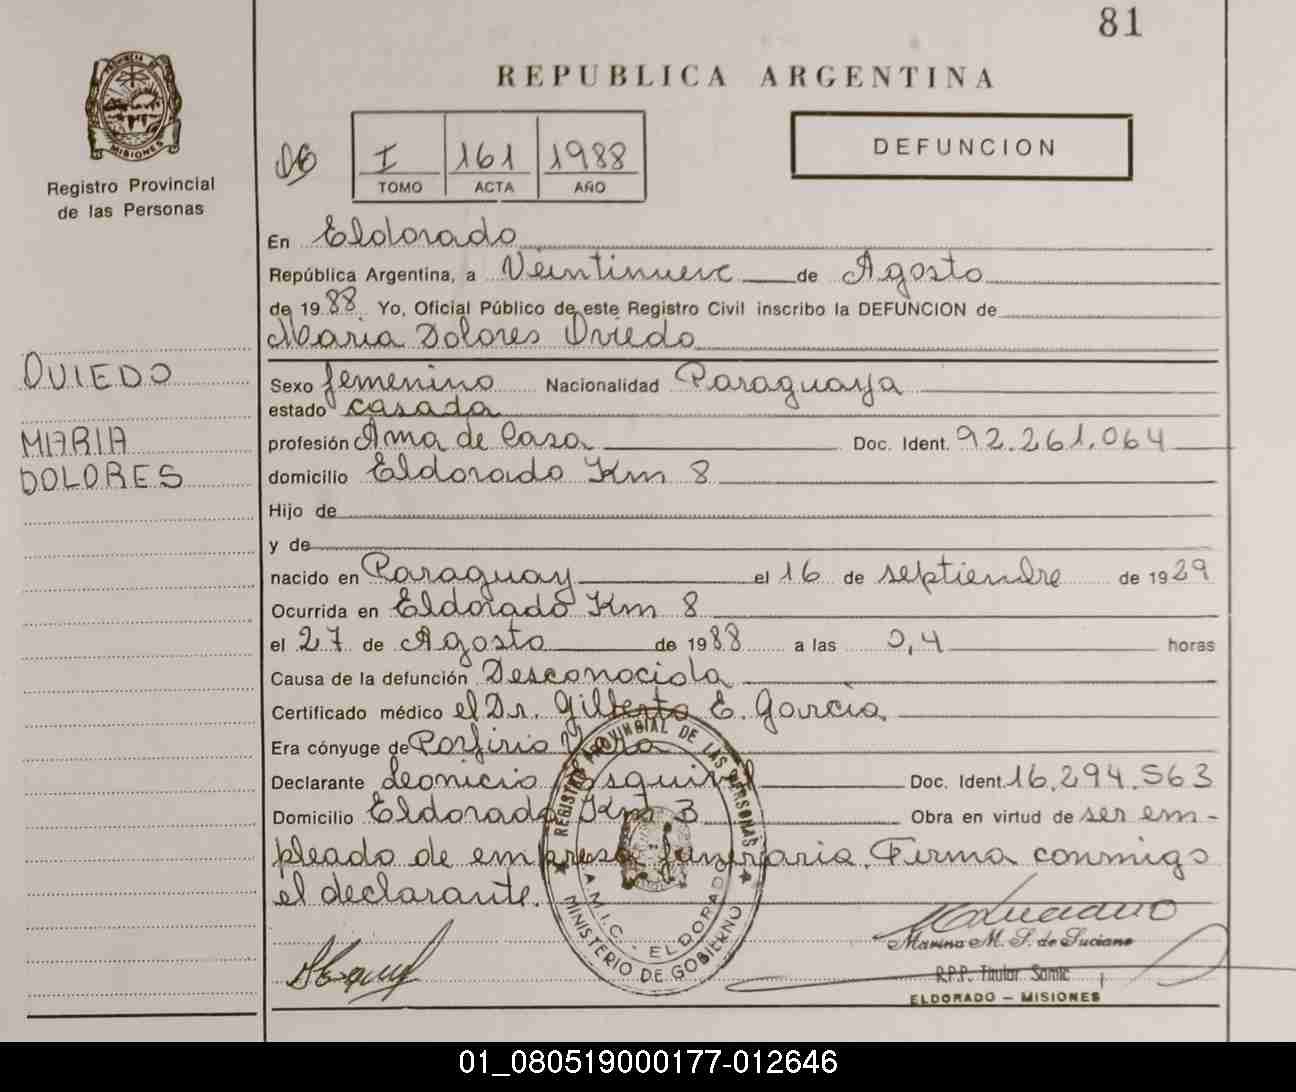 81
REPUBLICA ARGENTINA
PROVINCIA DE MISIONES
Registro Provincial
de las Personas
I 161 1988
TOMO ACTA AÑO
DEFUNCION
En Eldorado
República Argentina, a Veintinueve de Agosto
de 1988 Yo, Oficial Público de este Registro Civil inscribo la DEFUNCION de
Maria Dolores Oviedo
OVIEDO
MARIA
DOLORES
Sexo femenino Nacionalidad Paraguaya
estado casada
profesión Ama de Casa Doc. Ident. 92.261.064
domicilio Eldorado Km 8
Hijo de
y de
nacido en Paraguay el 16 de septiembre de 1929
Ocurrida en Eldorado Km 8
el 27 de Agosto de 1988 a las 0,4 horas
Causa de la defunción Desconocida
Certificado médico el Dr. Gilberto E. Garcia
Era cónyuge de Porfirio
Declarante Leonicio Esquivel Doc. Ident. 16.294.563
Domicilio Eldorado Km 3 Obra en virtud de ser em-
pleado de empresa funeraria. Firma conmigo
el declarante.
REGISTRO PROVINCIAL DE LAS PERSONAS
S.A.M.I.C. - ELDORADO
MINISTERIO DE GOBIERNO
Marina M. S. de Luciano
R.P.P. Titular Samic
ELDORADO - MISIONES
01_080519000177-012646